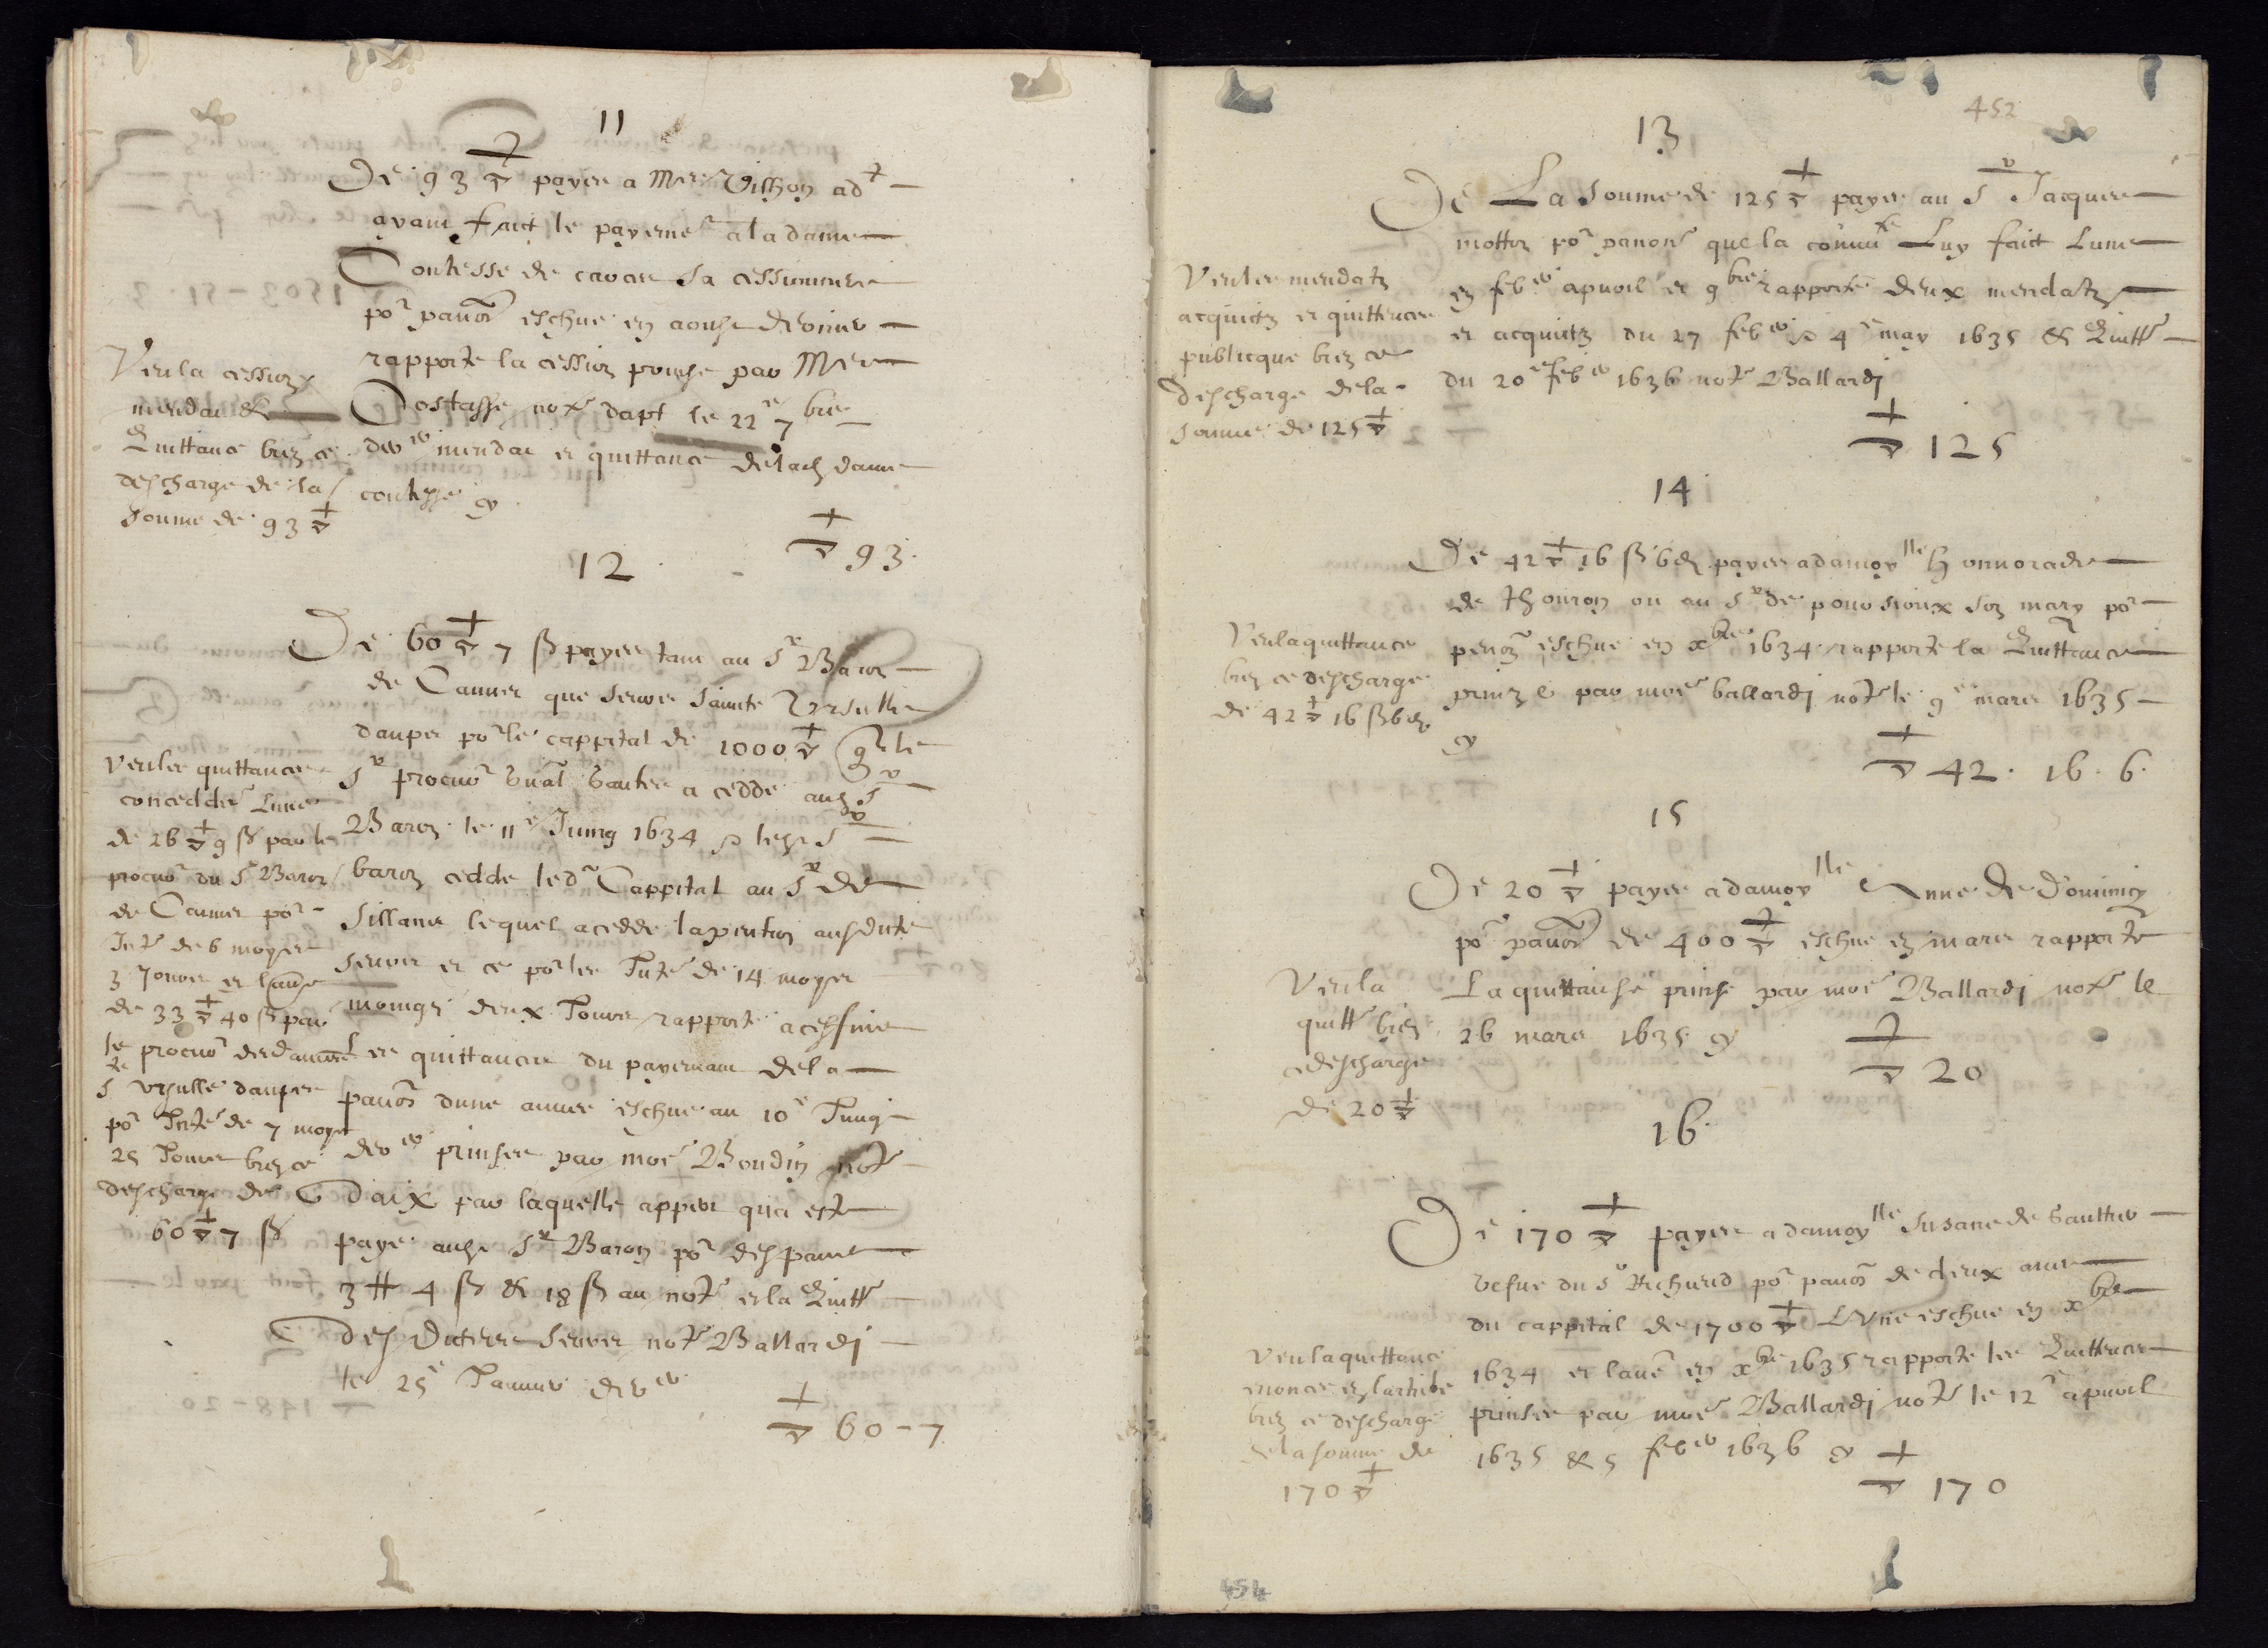 11
De 93 payes a Mre Vilhon adt
ayant faict le payemet a la dame
Contesse de sa cessionnere
por panon eschue en aoust dernier
rapporte la cession prinse par Mre
notre dapt le 22e 7bre
der mendat et quittance de lad dame
contesse cy
93
Veu la cession
mendat &
Quittance bien ce
descharge de la
somme de 93
12
De 60 7 ß payes tant au Sr Baron
de Cannes que seurs Sainte Ursulle
daupes por le cappital de 1000 q le
Sr procur gnal Gautier a cedde aud Sr
Baron le 11e Juing 1634 & led Sr
baron cedde led Cappital au Sr de
Sillans lequel a cedde la pention ausdites
seurs et ce por les Intes de 14 moys
moings deux Jours rapporte a ces fins
les quittances du payemant de la
panon dune annee eschue au 10e Juing
der prinses par moe Boudin notre
daix par laquelle appert qua este
payé aud Sr Baron por despans
3 # 4 ß & 18 ß au notre et la Quitte
desdittes seurs notre Ballardi
le 25e Janvier der
60 - 7
Veu les quittances
conceddes Lune
de 26 9 ß par le
procur du Sr Baron
de Cannes por
Inte de 6 moys
3 Jours et lautre
de 33 40 ß par
le procur des dames
de
S Ursulle daupes
por Inte de 7 moys
25 Jours bien ce
descharge de
60 7 ß
452
13
De La somme de 125 payes au Sr Jacques
motton por panons que la commte Luy faict Lune
en febr apvril et 9bre rapporte deux mendatz
et acquictz du 27 febr & 4e may 1635 & Quitte
du 20e febr 1636 notre Ballardi
125
Veu les mendatz
acquictz et quittences
publicque bien ce
descharge de la
somme de 125
14
De 42 16 ß 6 d payes a damoylle Honnorade
de Thouron ou au Sr de son mary por
penon eschue en xbre 1634 rapporte la Quittance
prinze par moe ballardi notre le 9e mars 1635
cy
42 . 16 . 6 .
Veu la quittance
bien ce descharge
de 42 16 ß 6 d
15
De 20 payes a damoylle Anne de Dominicy
por panon de 400 eschue en mars rapporte
La quittanse prinse par moe Ballardi notre le
26 mars 1635 cy
20
Veu la
quitte bien
ce descharge
de 20
16
De 170 payes a damoylle Susane de Gaultier
vefue du Sr por panon de deux ans
du cappital de 1700 Lune eschue en xbre
1634 et laue en xbre 1635 rapporte les Quittences
prinses par moe Ballardi notre le 12e apvril
1635 & 5 febr 1636 cy
170
Veu la quittance
enonce en larticle
bien ce descharge
de la somme de
170
454